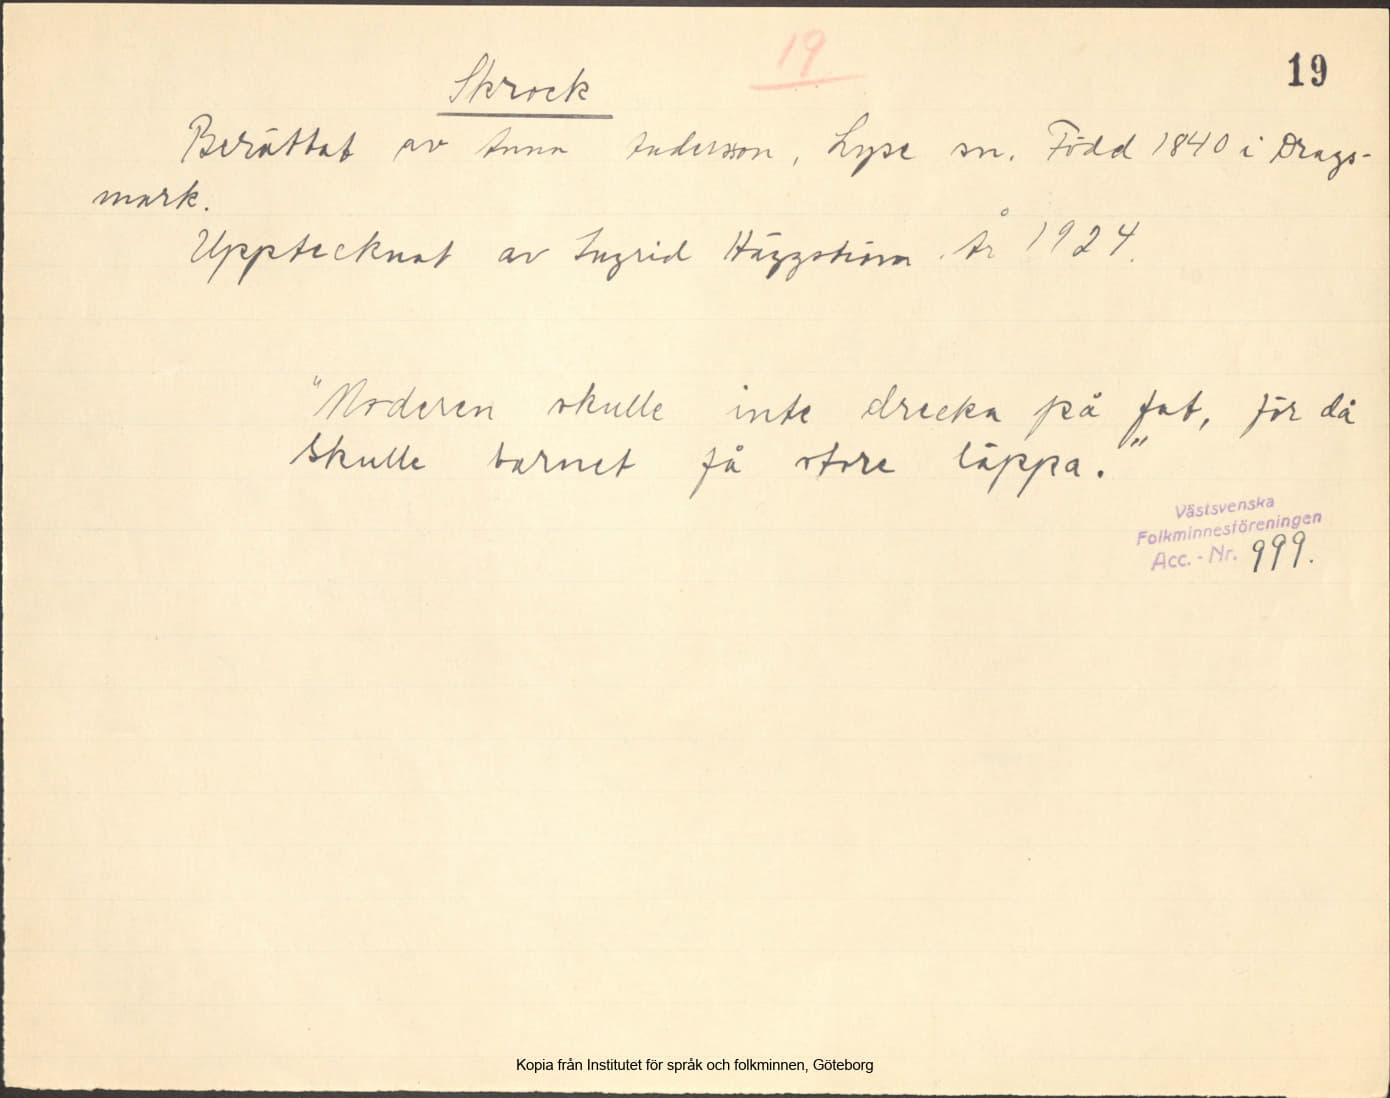 19
19
Skrock
Berättat av Anna Andersson, Lyse sn. Född 1840 i Drags-
mark.
Upptecknat av Ingrid Häggström År 1924.
"Moderen skulle inte drecka på fat, för då
skulle barnet få store läppa."
Västsvenska
Folkminnesföreningen
Acc. - Nr. 999.
Kopia från Institutet för språk och folkminnen, Göteborg